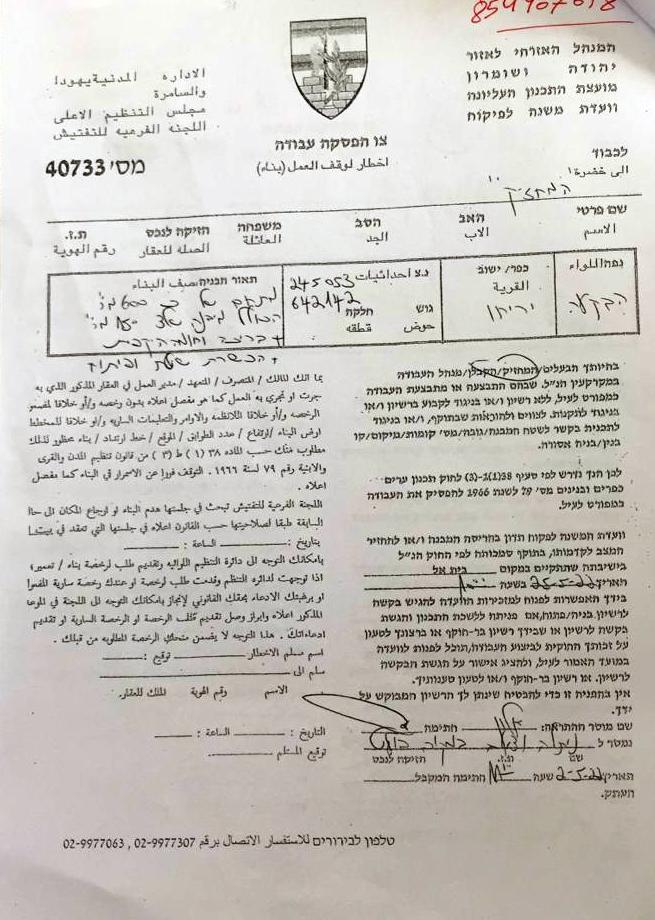 854907618
המנהל האזרחי לאזור
יהודה ושומרון
מועצת התכנון העליונה
וועדת משנה לפיקוח
الاداره المدنية يهودا
والسامرة
مجلس التنظيم الاعلى
اللجنه الفرعيه للتفتيش
צו הפסקת עבודה
اخطار لوقف العمل (بناء)
מס' 40733
לכבוד
الى حضرة
המחזיק
שם פרטי האב הסב משפחה חזיקה לנכס ת.ז.
الاسم الاب الجد العائلة الصله للعقار رقم الهوية
נפה/اللواء כפר/ישוב נ.צ احداثيات 245053 תאור הבניה: صف البناء
הבקעה القرية 642142
יריחו גוש חלקה
حوض قطعه
בהיותך הבעלים/המחזיק/הקבלן/מנהל העבודה
במקרקעין הנ"ל. שבהם התבצעה או מתבצעת העבודה
כמפורט לעיל, ללא רשיון או בניגוד לקבוע ברשיון ו/או
בניגוד לתקנות. לצווים ולהוראות שבתוקף, ו/או בניגוד
לתכנית בקשר לשטח המבנה/גובה/מס' קומות/מיקום/קו
בנין/בניה אסורה.
לכן הנך נדרש לפי סעיף 38(1)-(3) לחוק תכנון ערים
כפרים ובנינים מס' 79 לשנת 1966 להפסיק את העבודה
כמפורט לעיל.
וועדת המשנה לפקוח תדון בהריסת המבנה ו/או להחזיר
המצב לקדמותו, בתוקף סמכותה לפי החוק הנ"ל
בישיבתה שתתקיים במקום בית אל
תאריך 25-5-22 בשעה
בידך האפשרות לפנות למזכירות הוועדה להגיש בקשה
לרשיון בניה/פתוח, אם פניתה ללשכת התכנון והגשת
בקשה לרשיון או שבידך רשיון בר-תוקף או ברצונך לטעון
על זכותך החוקית לביצוע העבודה, תוכל לפנות לוועדה
במועד האמור לעיל, ולהציג אישור על הגשת הבקשה
לרשיון. או רשיון בר-תוקף ו/או לטעון טענותיך.
אין בהפניה זו כדי להבטיח שינתן לך הרשיון המבוקש על
ידך.
שם מוסר ההתראה: חתימה
נמסר ל
שם ת.ז. חזיקה לנכס
תאריך 2-5-22 שעה חתימת המקבל
העתק.
بما انك المالك / المتصرف / المتعهد / مدير العمل في العقار المذكور الذي به
جرت او تجري به العمل كما هو مفصل اعلاه بدون رخصه و/أو خلافا لمضمون
الرخصه و/أو خلافا للانظمه والاوامر والتعليمات السارية و/او خلافا للمخطط
اوض البناء /ارتفاع / عدد الطوابق / الموقع / خط ارتداد / بناء محظور لذلك
مطلوب منك حسب الماده ٣٨ (١) ط (٣) من قانون تنظيم المدن والقرى
والابنية رقم ٧٩ لسنة ١٩٦٦. التوقف فورا عن الاستمرار في البناء كما مفصل
اعلاه .
اللجنة الفرعية للتفتيش تبحث في جلستها هدم البناء او ارجاع المكان الى حالته
السابقة طبقا لصلاحيتها حسب القانون اعلاه في جلستها التي تعقد في
بتاريخ: الساعة :
بامكانك التوجه الى دائرة التنظيم اللوائيه وتقديم طلب لرخصة بناء / تعمير؛
اذا توجهت لدائره التنظم وقدمت طلب لرخصة او عندك رخصة سارية المفعول
او برغبتك الادعاء بحقك القانوني لإنجاز بامكانك التوجه الى اللجنة في الموعد
المذكور اعلاه وابراز وصل تقديم الطلب لرخصة او الرخصة السارية او تقديم
ادعاءاتك . هذا التوجه لا يضمن منحك الرخصة المطلوبه من قبلك .
اسم مسلم الاخطار توقيع :
سلم الى
الاسم رقم الهوية المالك للعقار.
التاريخ : الساعة :
توقيع المستلم
טלפון לבירורים للاستفسار الاتصال برقم 02-9977307 , 02-9977063